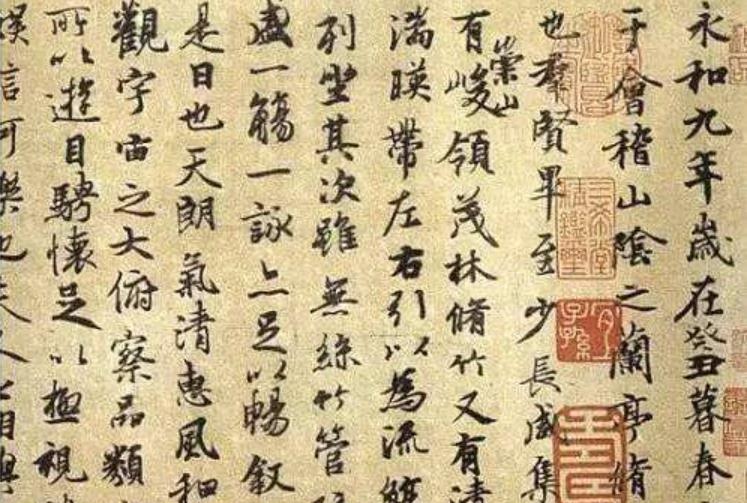 永和九年歲在癸丑暮春
于會稽山陰之蘭亭脩
也羣賢畢至少長咸集
有崇山峻領茂林脩竹又有清
湍暎帶左右引以為流觴
列坐其次雖無絲竹管
盛一觴一詠亦足以暢叙
是日也天朗氣清惠風和
觀宇宙之大俯察品類
所以遊目騁懷足以極視
娛信可樂也夫人之相與
三希堂
精鑑璽
宜
子孫